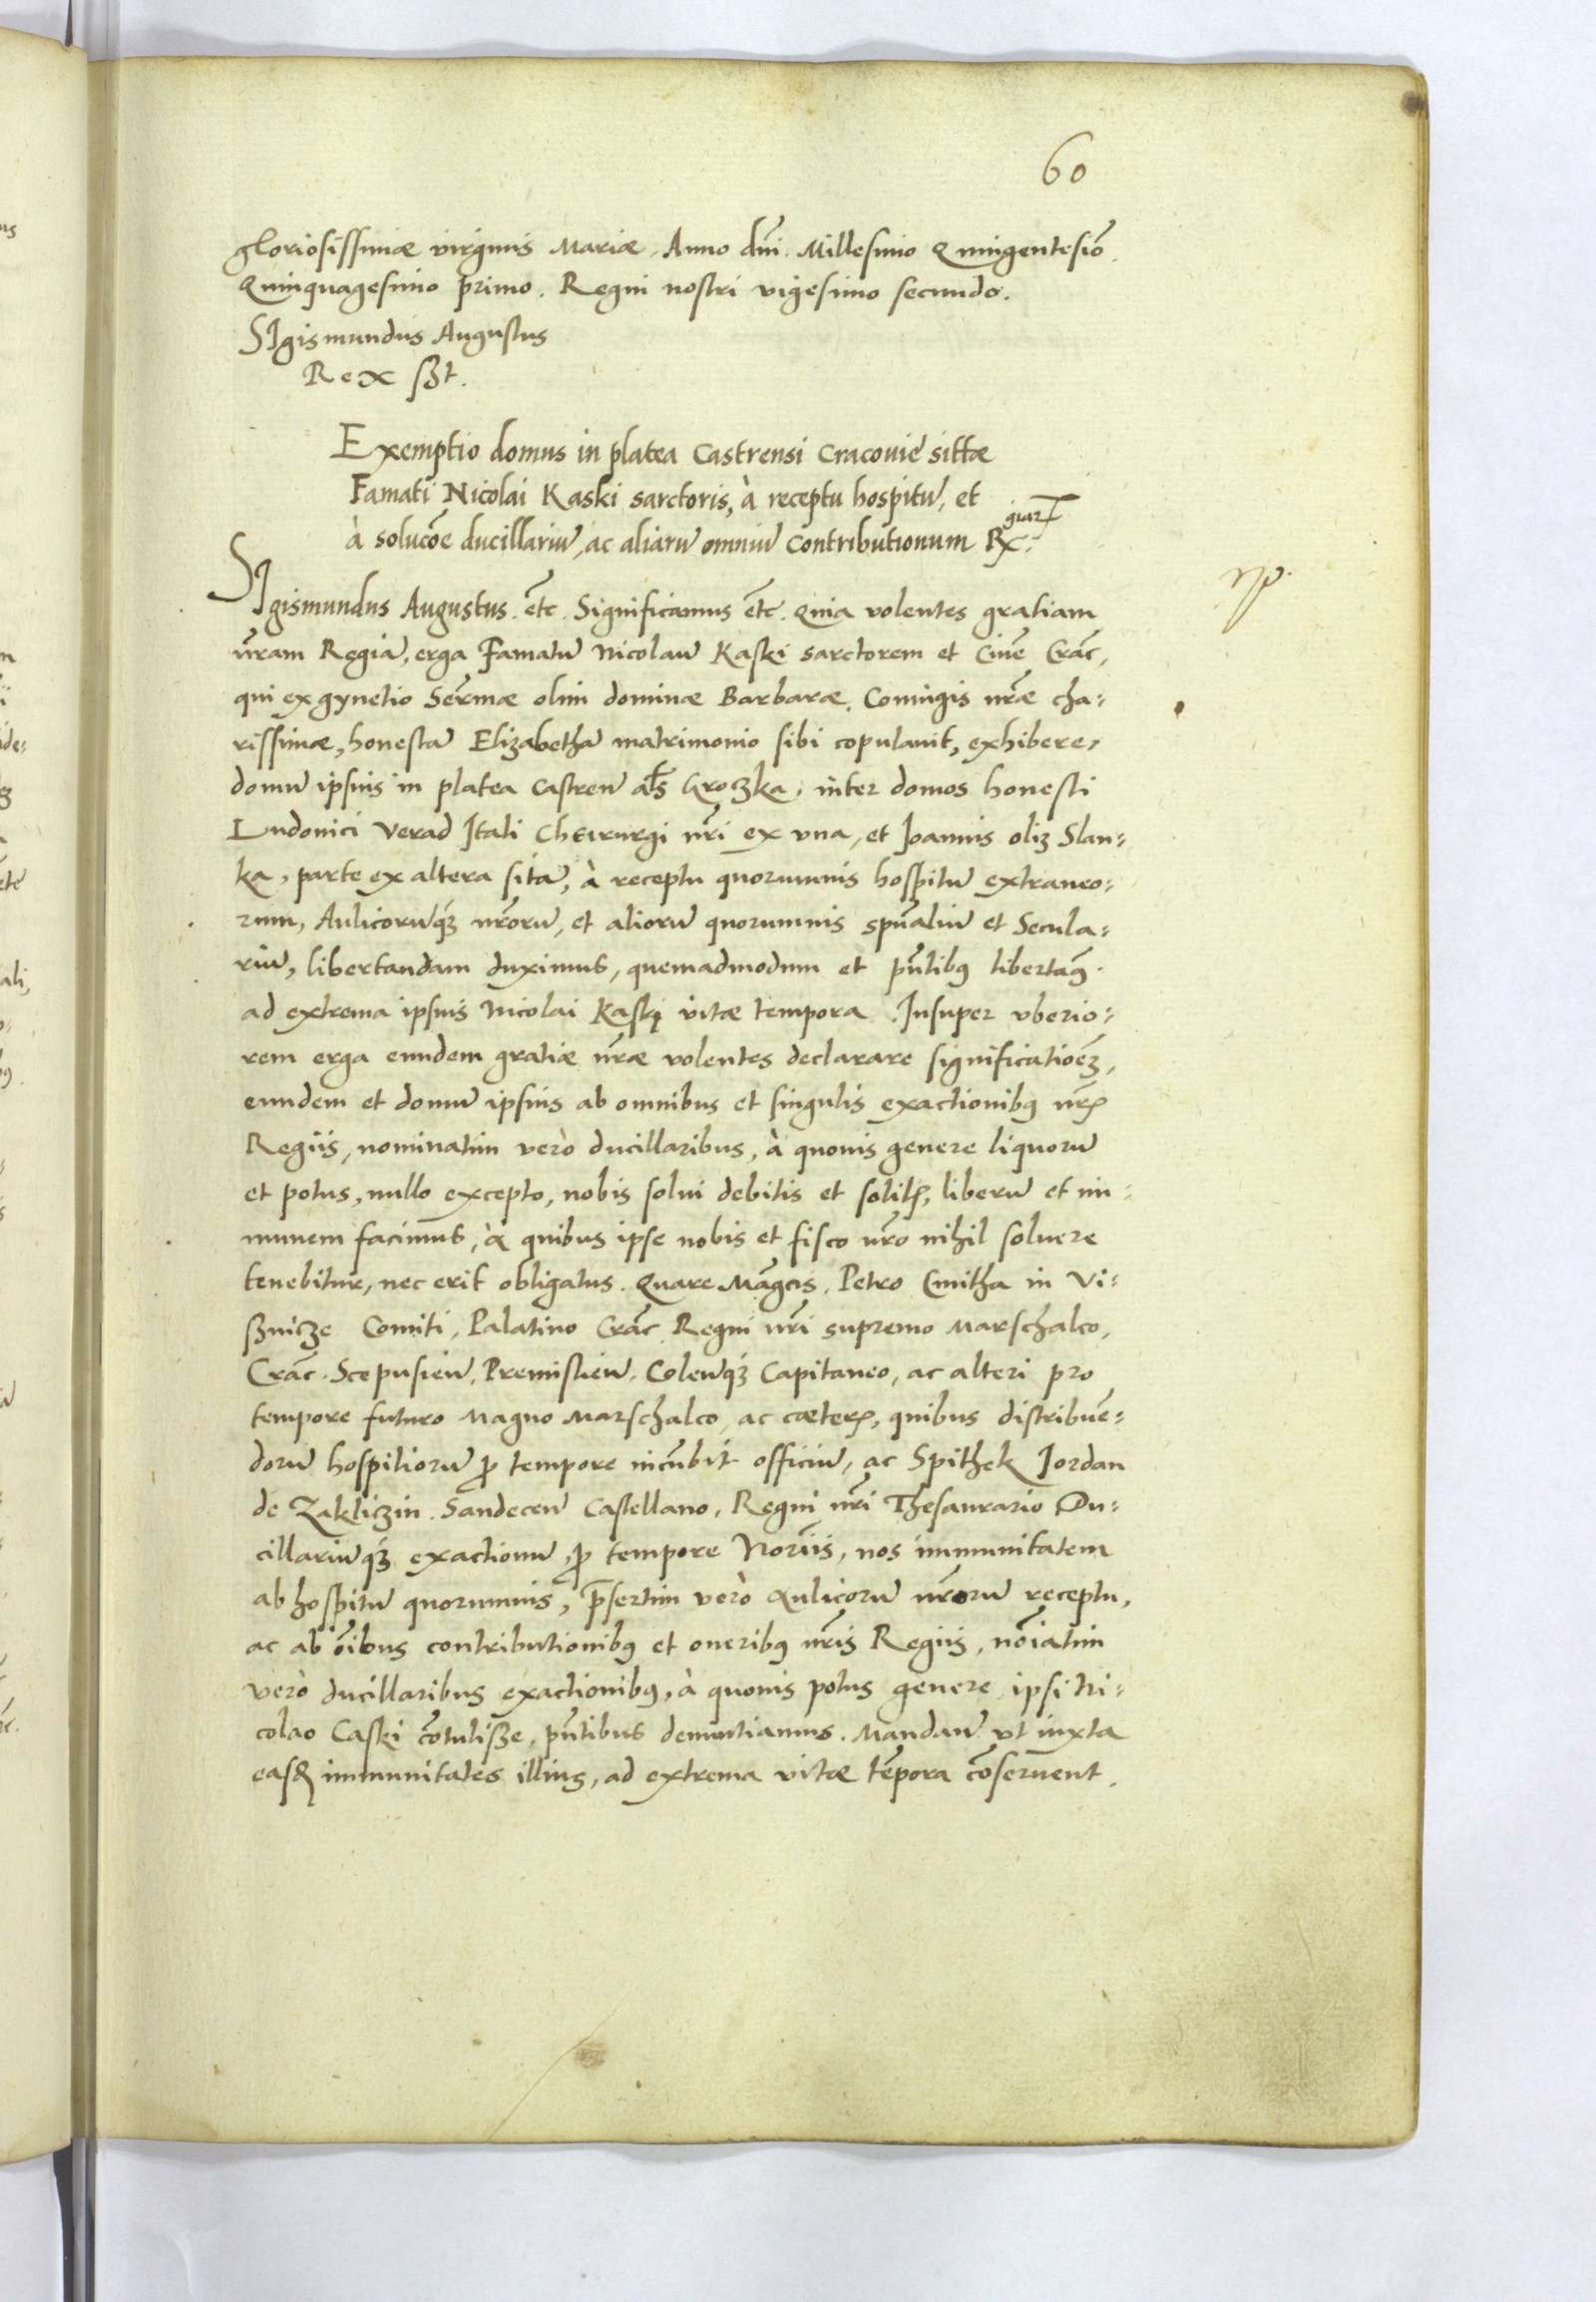 60
gloriosissimæ virginis Mariæ. Anno dñi. Millesimo Quingentesiõ
Quinquagesimo primo. Regni nostri vigesimo secundo.
SIgismundus Augustus
Rex sßt.
Exemptio domus in platea Castrensi Cracovie sittæ
Famati Nicolai Kaski sarctoris, à receptu hospitũ, et
à solucõe ducillariũ, ac aliarũ omniũ contributionum R
SIgismundus Augustus. etc̃. Significamus etc̃. Quia volentes gratiam
nr̃am Regiã, erga Famatũ Nicolaũ Kaski sarctorem et Civẽ Crac̃,
qui ex gynetio Ser̃mæ olim dominæ Barbaræ. Coniugis nr̃æ cha=
rissimæ, honestã Elizabethã matrimonio sibi copulavit, exhibere,
domũ ipsius in platea Castreñ al̃s Groczka, inter domos honesti
Ludovici Verad Itali Cheirurgi nr̃i ex vna, et Joannis oliz Slan=
ka, parte ex altera sitã, à receptu quorumvis hospitũ extraneo=
rum, Aulicorũqz nr̃orũ, et aliorũ quorumvis spũaliũ et Secula=
riũ, libertandam duximus, quemadmodum et pñtibq libertamq.
ad extrema ipsius Nicolai Kaski vitæ tempora. Insuper vberio=
rem erga eundem gratiæ nr̃æ volentes declarare significatioẽz,
eundem et domũ ipsius ab omnibus et singulis exactionibq nr̃is
Regiis, nominatim verò ducillaribus, à quovis genere liquorũ
et potus, nullo excepto, nobis solui debitis et solitis, liberũ et im=
munem facimus, à quibus ipse nobis et fisco nr̃o nihil soluere
tenebitur, nec erit obligatus. Quare Mãgcis. Petro Cmitha in Vi=
sznicze Comiti, Palatino Crac̃. Regni nr̃i supremo Marschalco,
Crac̃. Scepusieñ. Premislieñ. Coleñqz Capitaneo, ac alteri pro
tempore futuro Magno Marschalco, ac cæteris, quibus distribuẽ=
dorũ hospitiorũ p tempore incũbit officiũ, ac Spithek Jordan
de Zakliczin. Sandeceñ Castellano, Regni nr̃i Thesaurario Du=
cillariũqz exactionũ, p tempore Nor̃iis, nos immunitatem
ab hospitũ quorumvis, p̃sertim verò Aulicorũ nr̃orũ receptu,
ac ab õibus contributionibq et oneribq nr̃is Regiis, nõiatim
verò ducillaribus exactionibq, à quovis potus genere ipsi Ni=
colao Caski cõtulisze, pñtibus denuntiamus. Mandañ vt iuxta
easd immunitates illius, ad extrema vitæ tẽpora cõseruent.